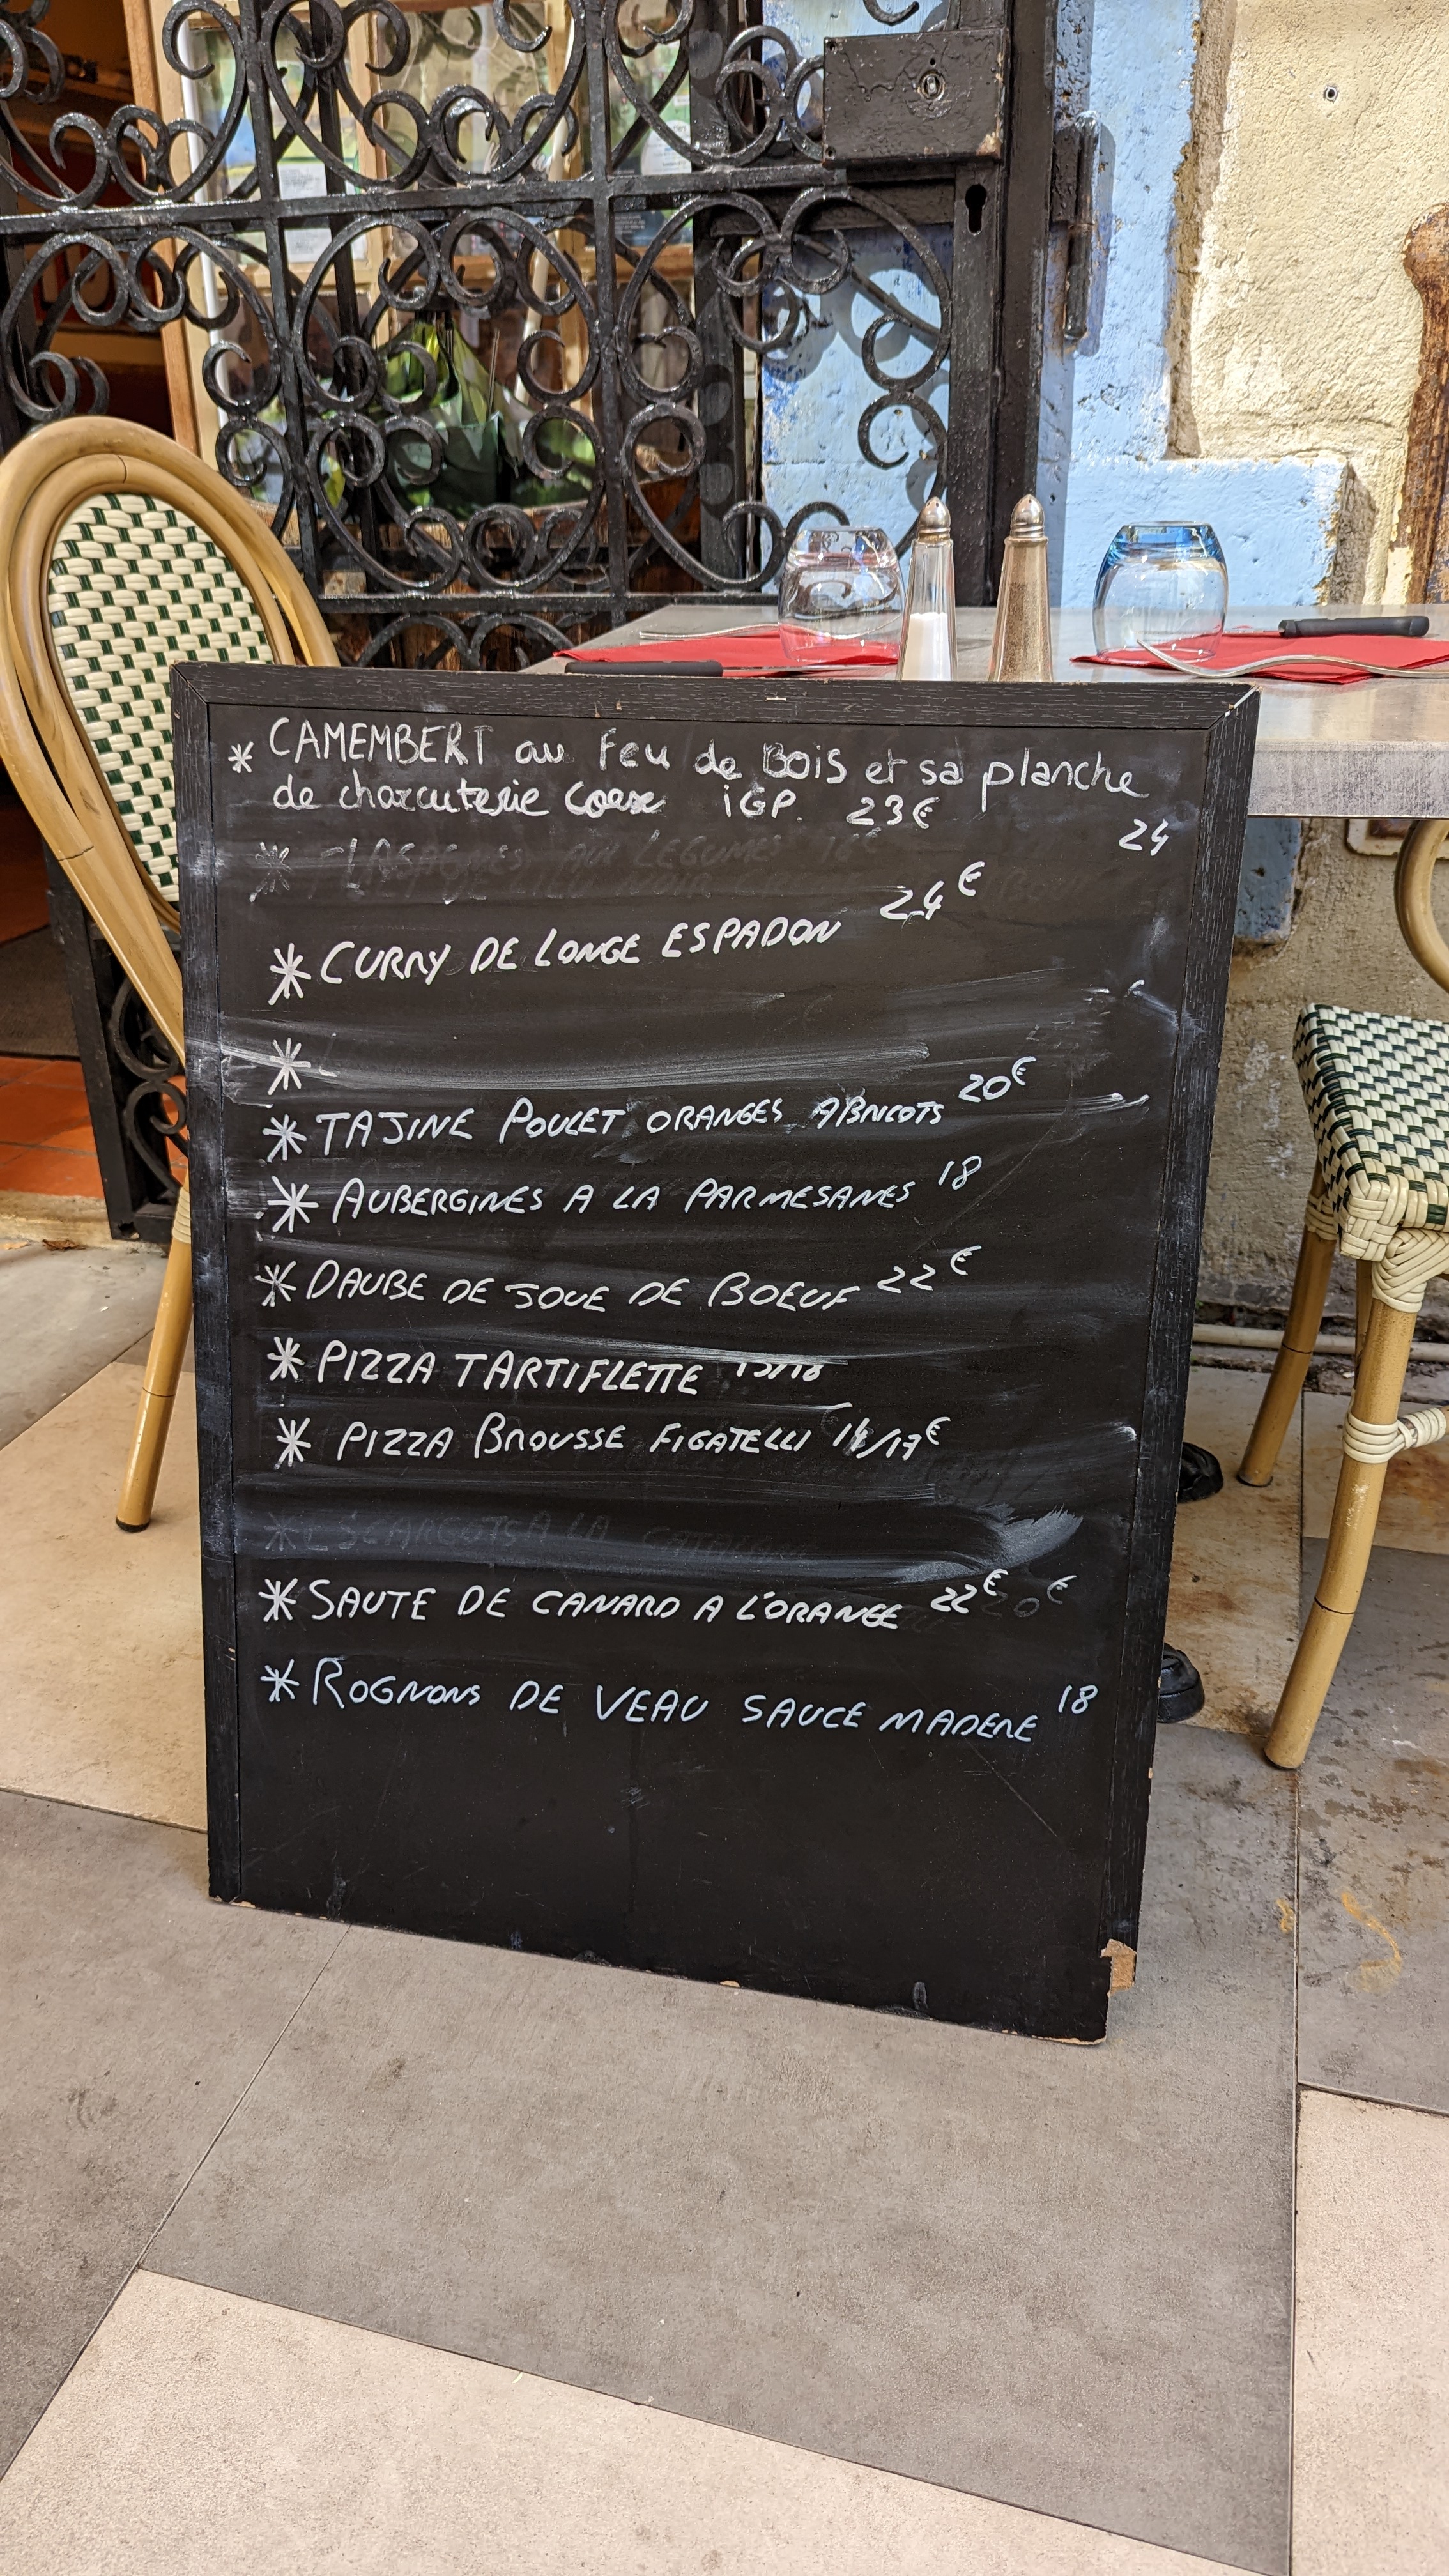 * CAMEMBERT au feu de Bois et sa planche
de charcuterie Corse IGP. 23€
24
* LASAGNES AUX LEGUMES 18€
* CURRY DE LONGE ESPADON 24€
*
* TAJINE POULET ORANGES ABRICOTS 20€
* AUBERGINES A LA PARMESANES 18
* DAUBE DE JOUE DE BOEUF 22€
* PIZZA TARTIFLETTE
* PIZZA BROUSSE FIGATELLI 14/17€
* ESCARGOTS A LA CATALANE
* SAUTE DE CANARD A L'ORANGE 22€ 20€
* ROGNONS DE VEAU SAUCE MADERE 18